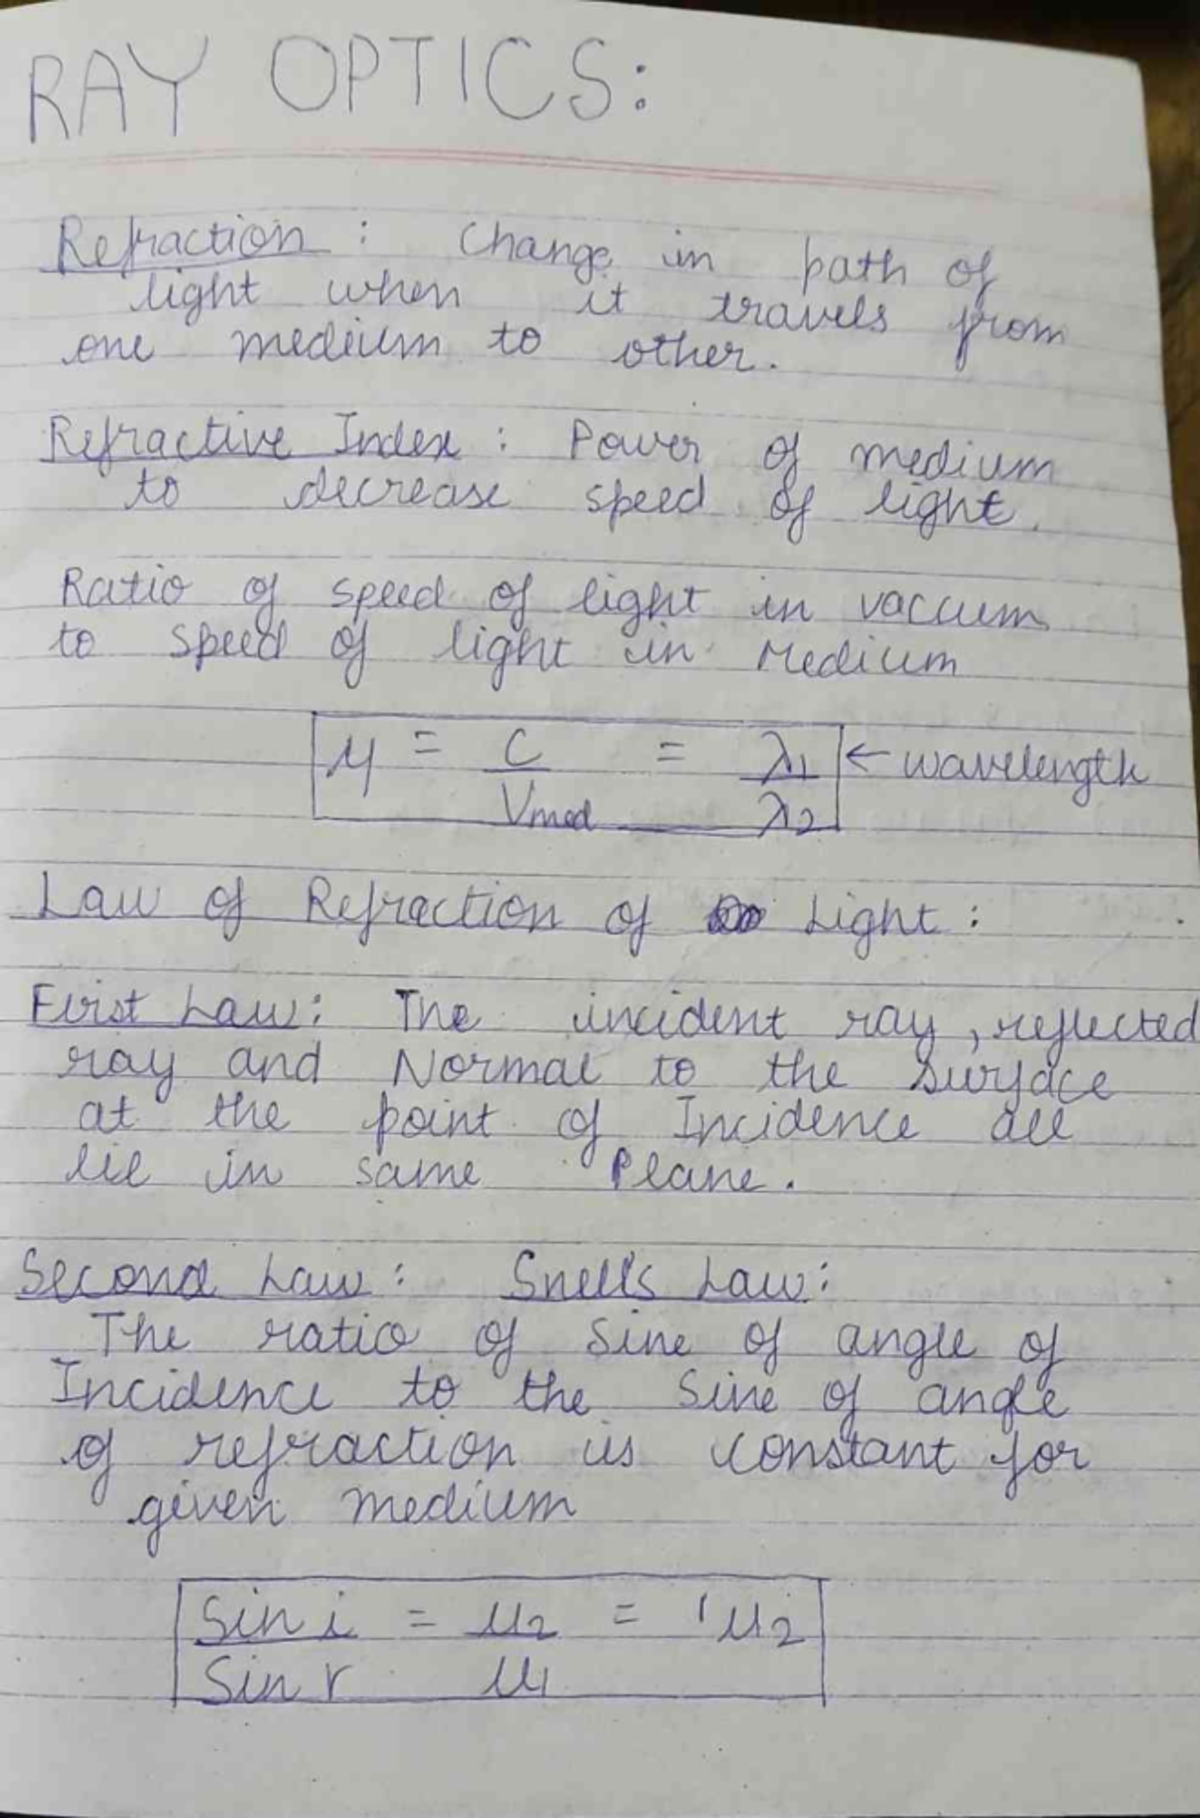 RAY OPTICS:
Refraction : Change in path of
light when it travels from
one medium to other.
Refractive Index : Power of medium
to decrease speed of light.
Ratio of speed of light in vaccum
to speed of light in Medium
μ = C / Vmed = λ1 / λ2 ← wavelength
Law of Refraction of Light :
First Law : The incident ray, reflected
ray and Normal to the Surface
at the point of Incidence all
lie in same Plane.
Second Law : Snell's Law :
The ratio of Sine of angle of
Incidence to the Sine of angle
of refraction is constant for
given medium
Sin i / Sin r = μ2 / μ1 = ¹μ2